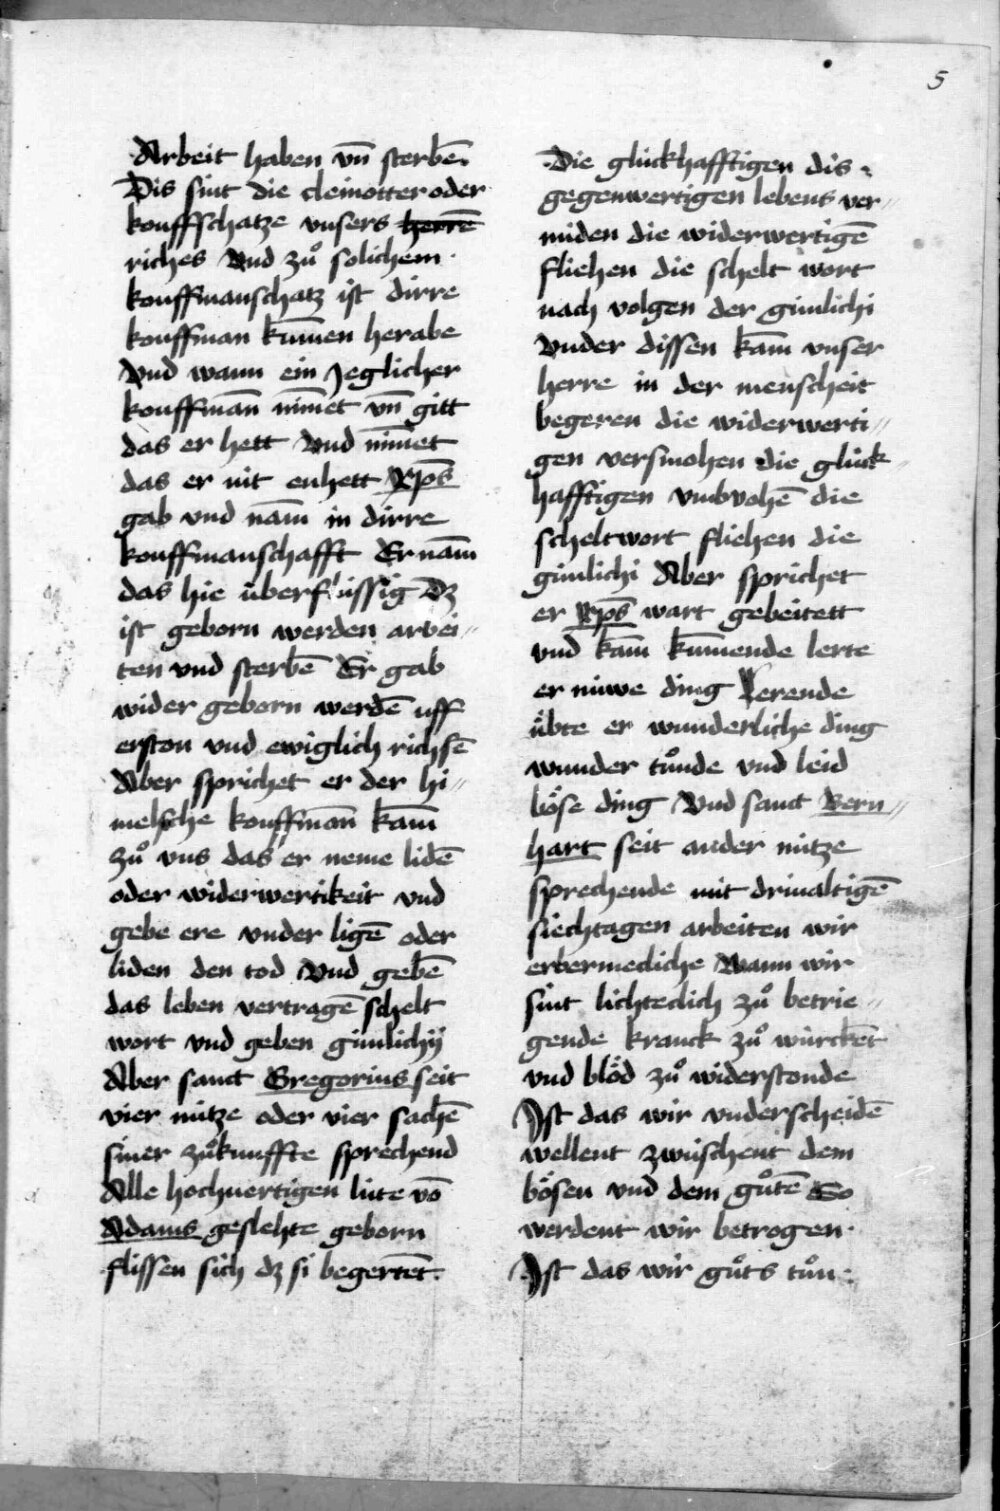 5
Arbeit haben vn̄ sterbē.
Dis sint die cleinotter oder
kouffschatze vnsers herrē
riches Vnd zuͦ solichem
kouffmanschatz ist dirre
kouffman kūmen herabe
Vnd wann ein Jeglicher
kouffman̄ nīmet vn̄ gitt
das er hett Vnd nīmet
das er nit enhett Xp̄s
gab vnd nam̄ in dirre
kouffmanschafft Er nam̄
das hie überflüssig dz
ist geborn werden arbei〃
ten vnd sterbē Er gab
wider geborn werdē uff
erston vnd ewiglich richsē
Aber sprichet er der hi〃
melsche kouffman̄ kam̄
zuͦ vns das er neme lidē
oder widerwertikeit vnd
gebe ere vnder ligē oder
liden den tod Vnd gebē
das leben vertragē schelt
wort vnd geben gimlichÿ
Aber sanct Gregorius seit
vier nütze oder vier sachē
siner zuͦkunffte sprechend
Alle hochuertigen lüte vō
Adams geslehte geborn
flissen sich dz si begertēt.
Die glückhafftigen dis
gegenwertigen lebens ver〃
miden die widerwertigē
fliehen die schelt wort
nach volgen der gimlichi
Vnder dissen kam̄ vnser
herre in der menscheit
begeren die widerwerti〃
gen versmohen die glück〃
hafftigen vmbvohē die
scheltwort fliehen die
gimlichi Aber sprichet
er Xp̄s wart gebeitett
vnd kam̄ kūmende lerte
er nüwe ding Lerende
übte er wunderliche ding
wunder tuͦnde vnd leid
böse ding Vnd sanct Bern〃
hart seit ander nütze
sprechende mit driualtigē
siechtagen arbeiten wir
erbermecliche Wann wir
sint lichteclich zuͦ betrie〃
gende kranck zuͦ würckēt
vnd blöd zuͦ widerstonde
Ist das wir vnderscheidē
wellent zwüschent dem
bösen vnd dem guͦtē So
werdent wir betrogen.
Ist das wir guͦts tuͦn